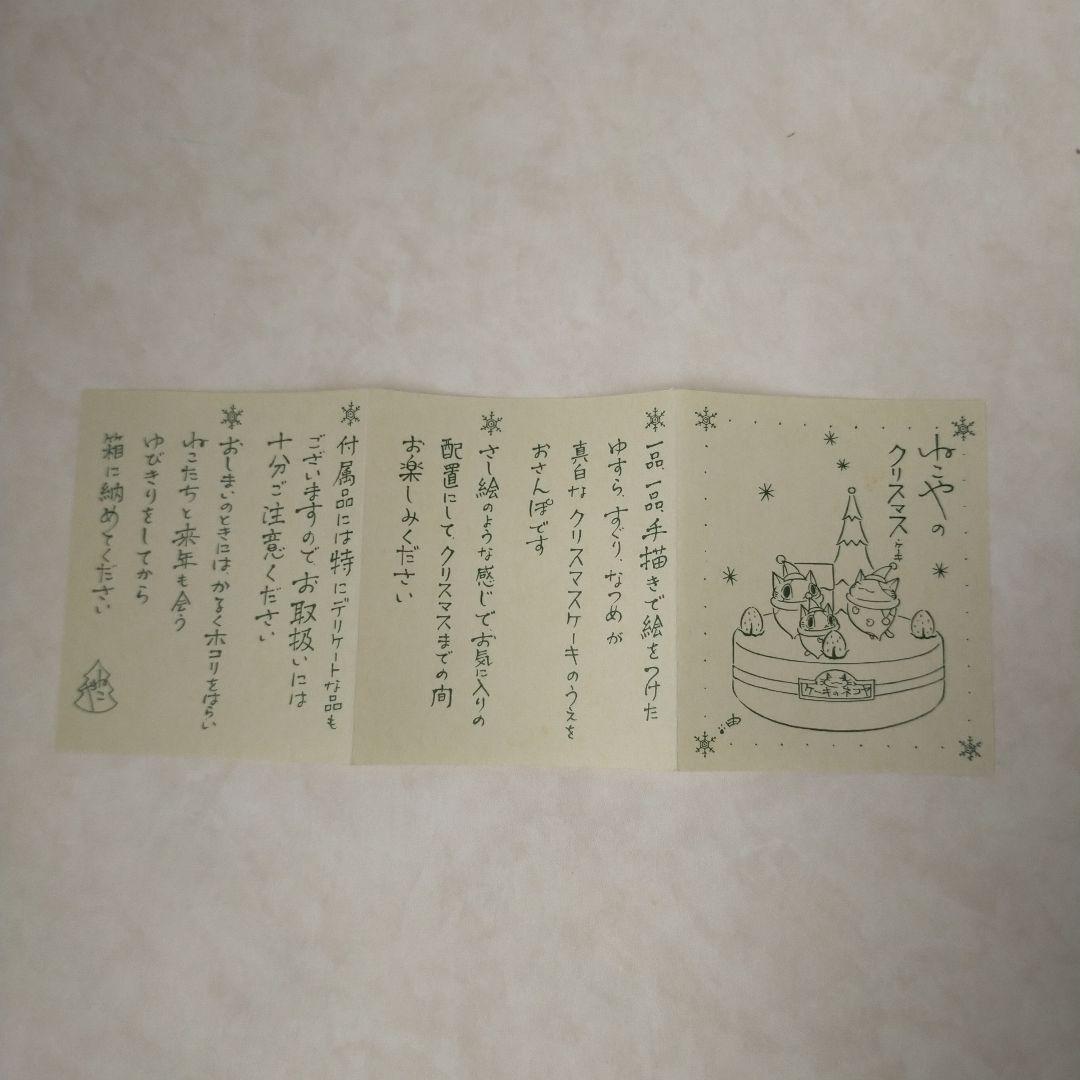 ねこやの
クリスマスケーキ
ケーキのネコヤ
一品一品、手描きで絵をつけた
ゆすら、すぐり、なつめが
真白なクリスマスケーキのうえを
おさんぽです
さし絵のような感じでお気に入りの
配置にして、クリスマスまでの間
お楽しみください
付属品には特にデリケートな品も
ございますので、お取扱いには
十分ご注意ください
おしまいのときには、かるくホコリをはらい
ねこたちと来年も会う
ゆびきりをしてから
箱に納めてください